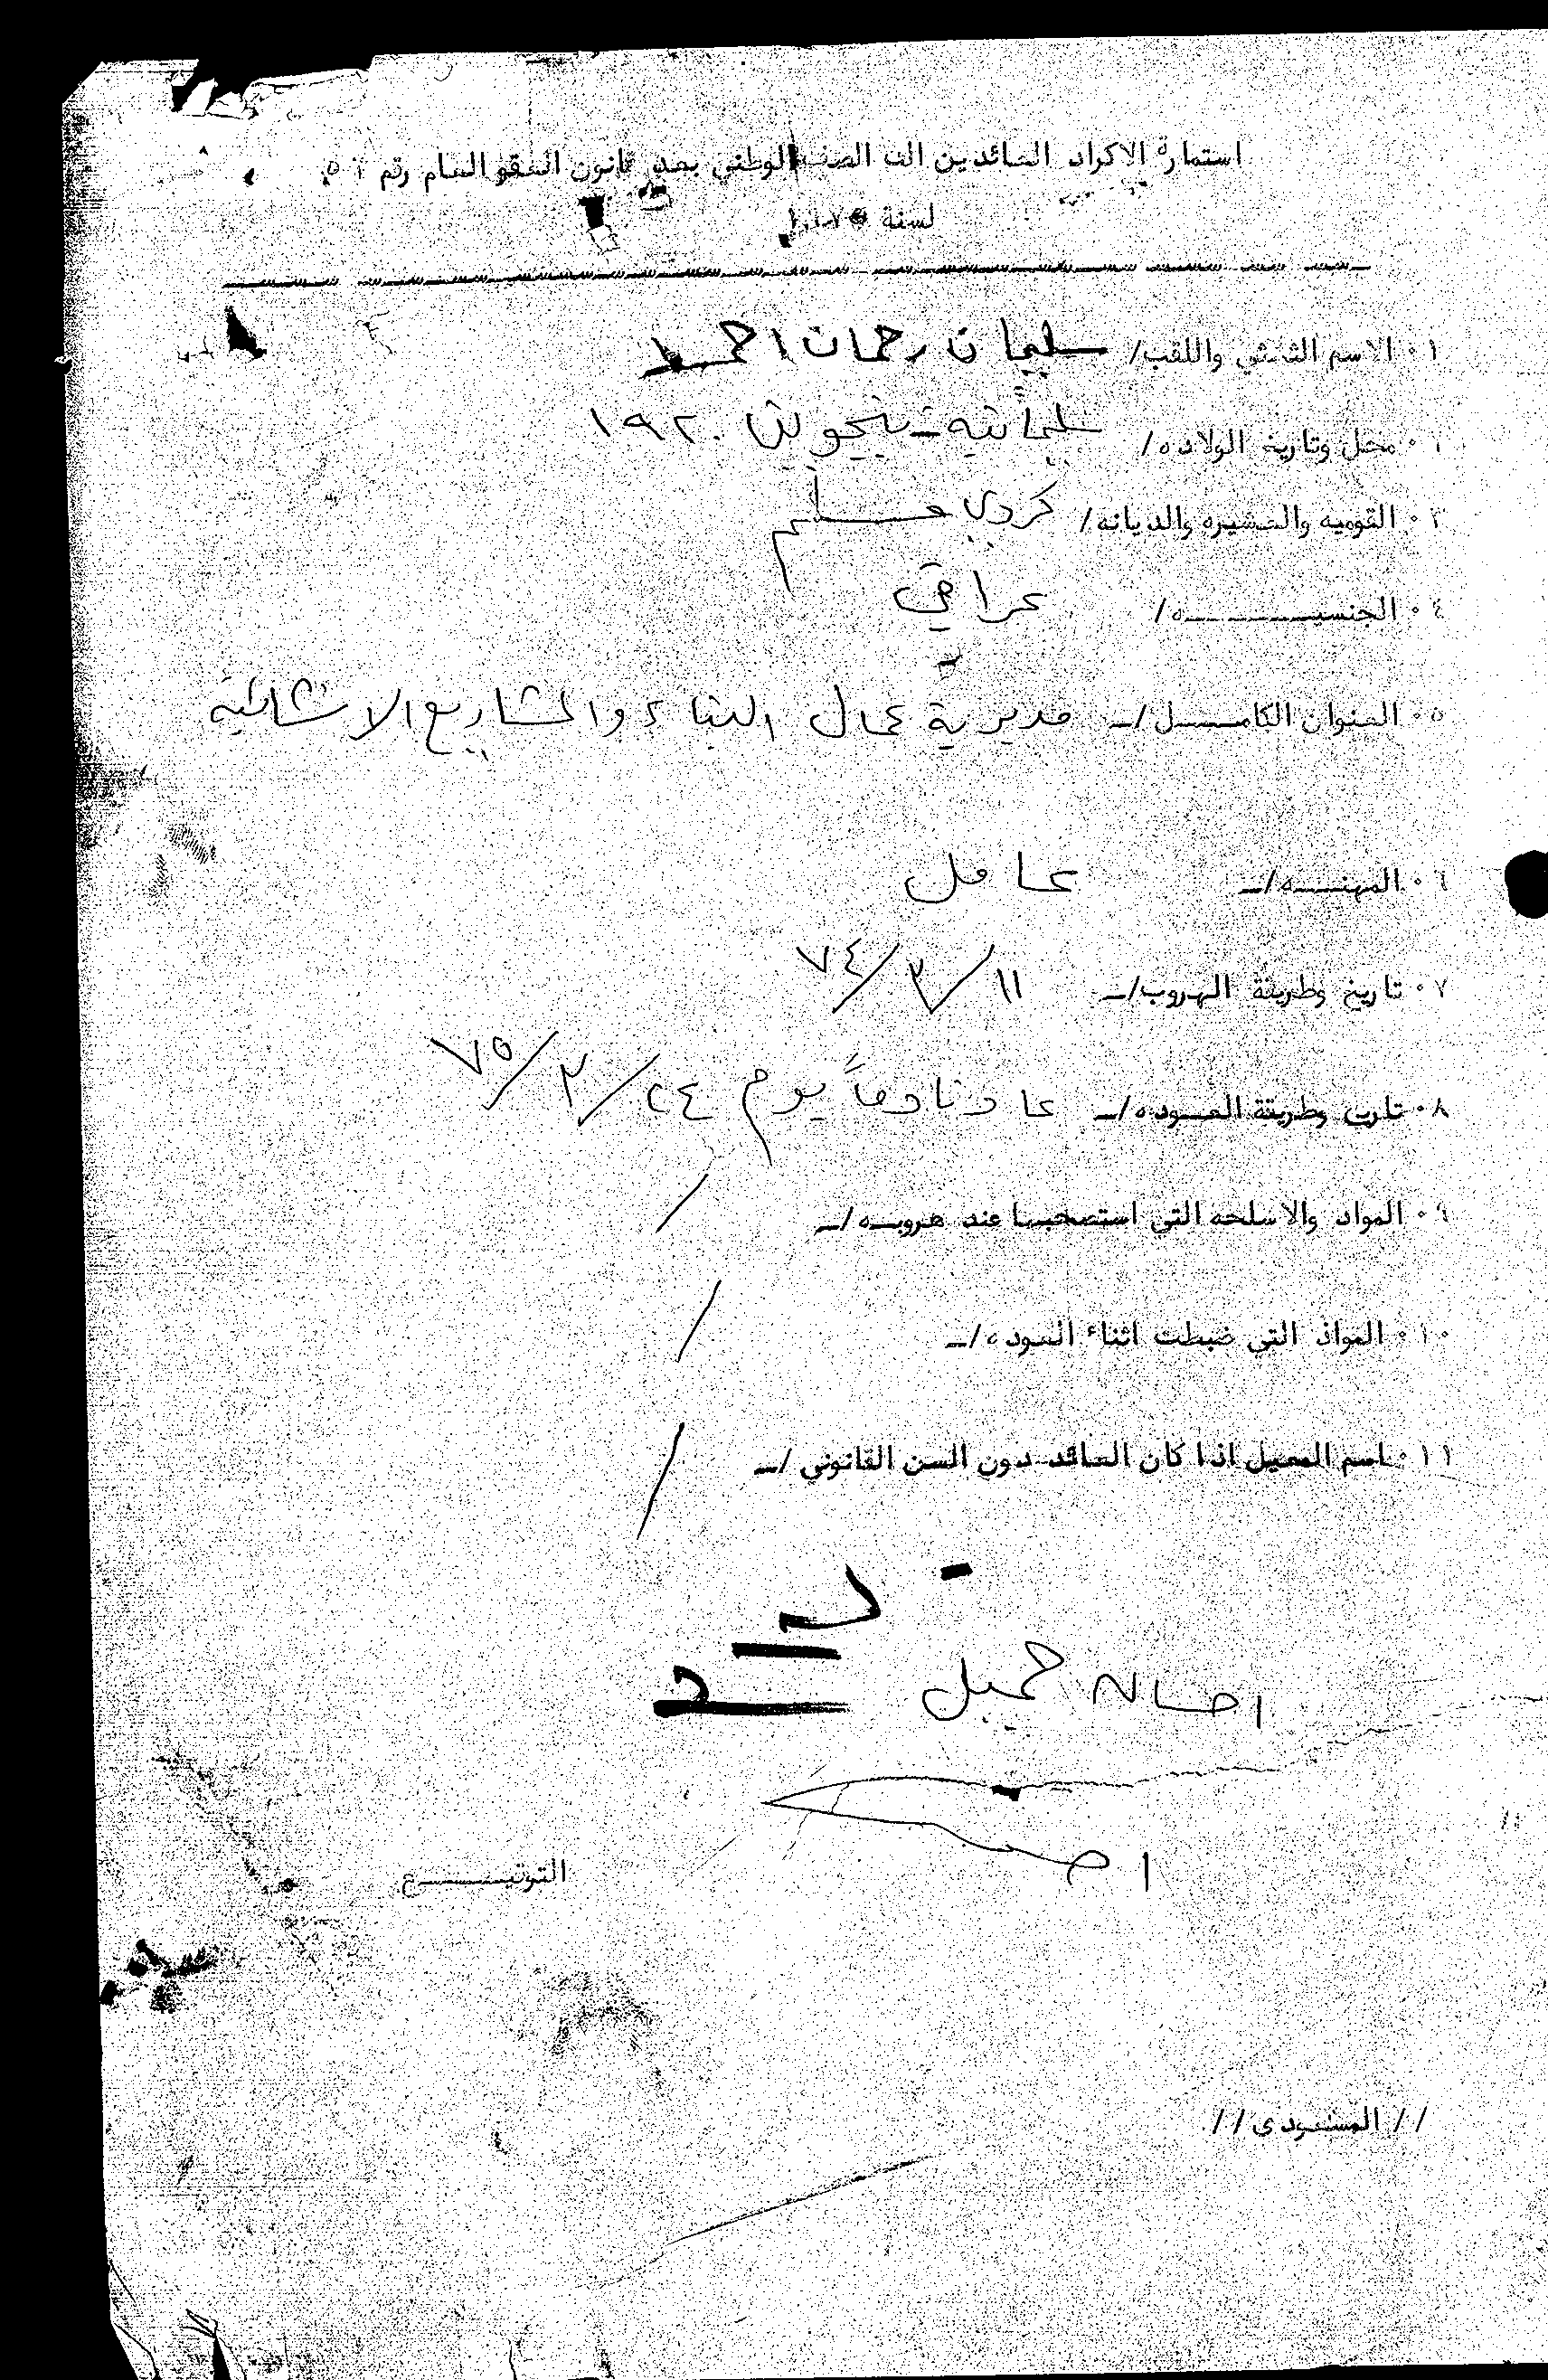 استمارة الاكراد العائدين الى الصف الوطني بعد قانون العفو العام رقم
لسنة
١٠ الاسم الثلاثي واللقب/ سليمان رحمان احمد
٢٠ محل وتاريخ الولاده/ سليمانيه - بنجوين ١٩٢٠
٣٠ القوميه والعشيره والديانه/ كردي مسلم
٤٠ الجنسيـــــــه/ عراقي
٥٠ العنوان الكامــــل/ــ مديرية عمال البناء والمشاريع الانشائية
٦٠ المهنـــه/ــ عامل
٧٠ تاريخ وطريقة الهروب/ــ ١١/٣/٧٤
٨٠ تاريخ وطريقة العــوده/ــ عاد نادماً يوم ٢٤/٣/٧٥
٩٠ المواد والاسلحه التي استصحبها عند هروبــه/ــ /
١٠٠ المواد التي ضبطت اثناء العوده/ــ /
١١٠ اسم المعيل اذا كان العائد دون السن القانوني/ــ /
جميل
التوقيــــــع
// المسعودى //